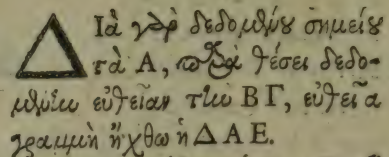 ΔΙὰ γὰρ δεδομένου σημείου
τὰ Α, παρὰ θέσει δεδο-
μένην εὐθεῖαν τὴν ΒΓ, εὐθεῖα
γραμμὴ ἤχθω ἡ ΔΑΕ.